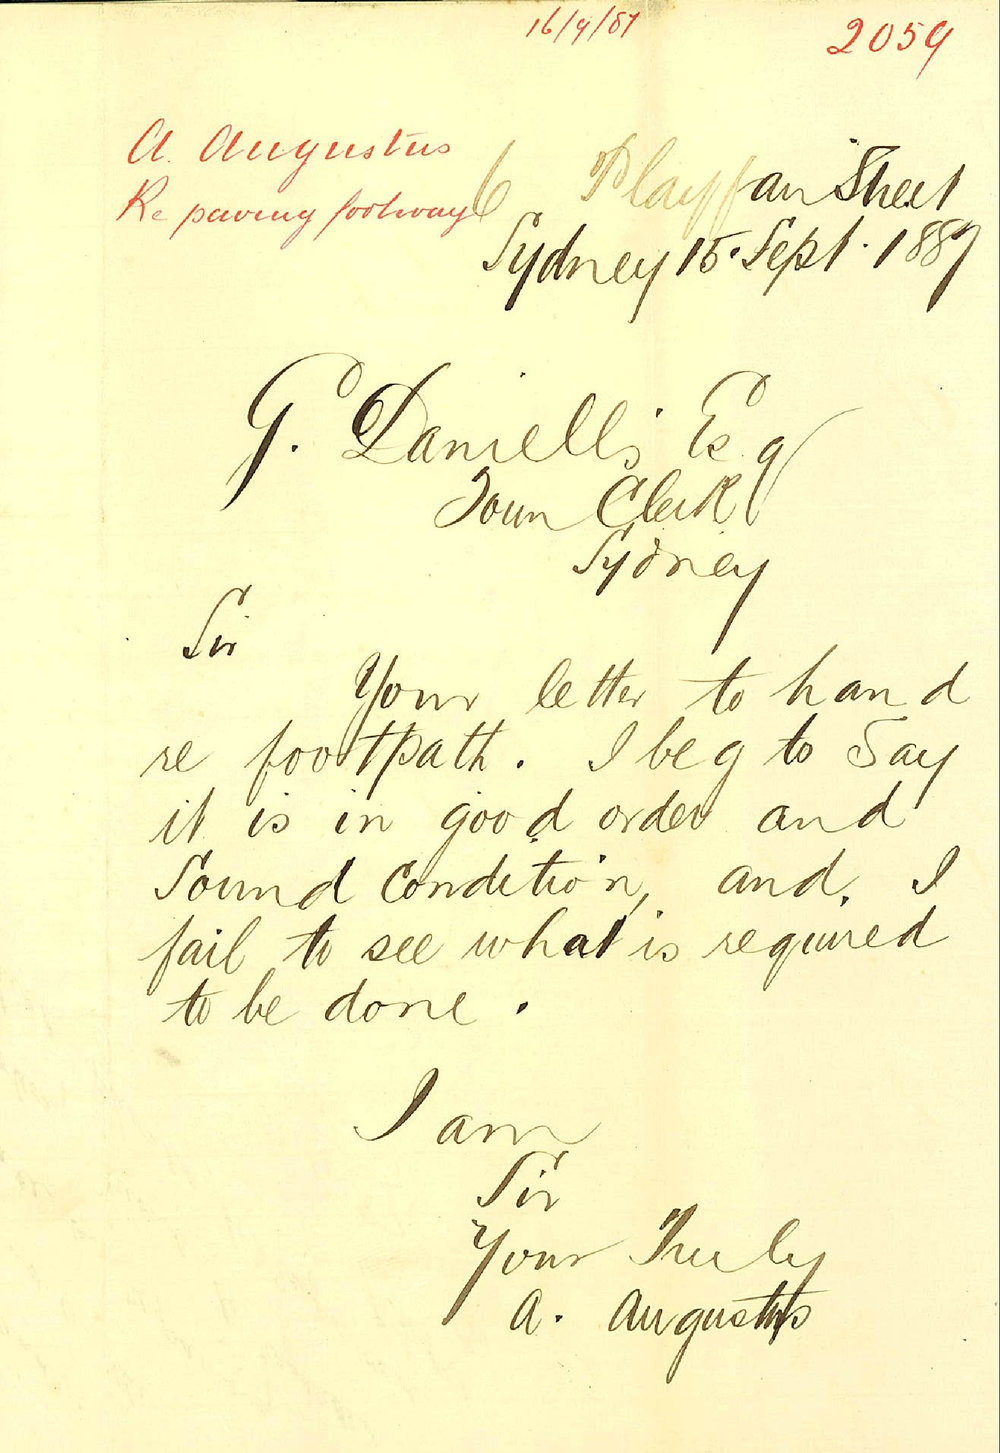 16/9/87
2059
A. Augustus
Re paving footway
6 Playffair Street
Sydney 15. Sept. 1887
G. Daniells Esq
Town Clerk
Sydney
Sir
Your letter to hand
re footpath. I beg to Say
it is in good order and
Sound Condition, and, I
fail to see what is required
to be done.
I am
Sir
Your Truly
A. Augustus